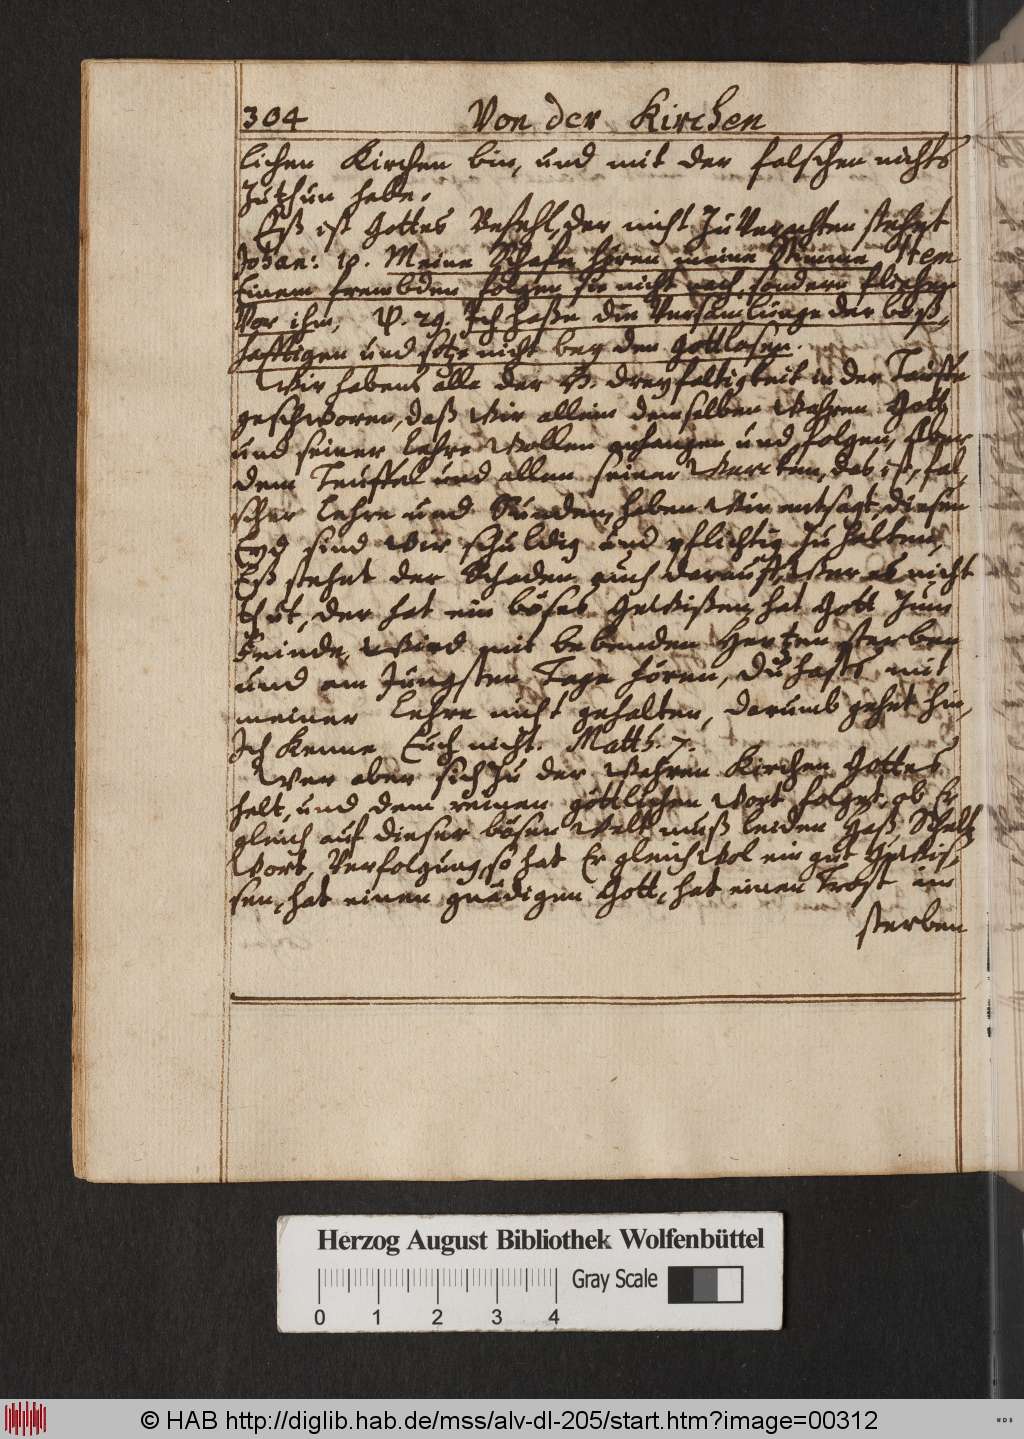 304 Von der Kirchen
lichen Kirchen bin, und mit der falschen nichts
Zuthun habe.
Eß ist Gottes Befehl, der nicht Zu Verachten stehet
Johan: 10. Meine Schafe hören meine Stimme Item
Einem frembden folgen sie nicht nach, sondern fliehen
Vor ihm, Ps. 29. Ich haße die Versamlunge der boß,
hafftigen und sitze nicht bey den Gottlosen.
Wir habens alle der H. dreyfaltigkeit in der Tauffe
geschworen, daß Wir allein demselben Wahren Gott
und seiner lehre Wollen anhangen und folgen, Aber
dem Teuffel und allen seinen Wercken, das ist, fal,
scher lehre und Sünden, haben Wir entsagt, diesen
Eyd sind Wir schuldig und pflichtig Zu halten,
Eß stehet der Schaden auch darauff, Wer es nicht
thut, der hat ein böses GeWißen, hat Gott Zum
Feinde, Wird mit bebenden Hertzen sterben
und am Jüngsten Tage hören, du hasts mit
meiner lehre nicht gehalten, darumb gehet hin,
Ich Kenne Euch nicht. Matth. 7.
Wer aber sich Zu der Wahren Kirchen Gottes
helt, und dem reinen göttlichen Wort folget, ob Er
gleich auf dieser bösen Welt muß leiden Haß, Schelt
Wort, Verfolgung, so hat Er gleich Wol ein gut GeWis,
sen, hat einen gnädigen Gott, hat einen Trost im
sterben
Herzog August Bibliothek Wolfenbüttel
Gray Scale
0 1 2 3 4
© HAB http://diglib.hab.de/mss/alv-dl-205/start.htm?image=00312